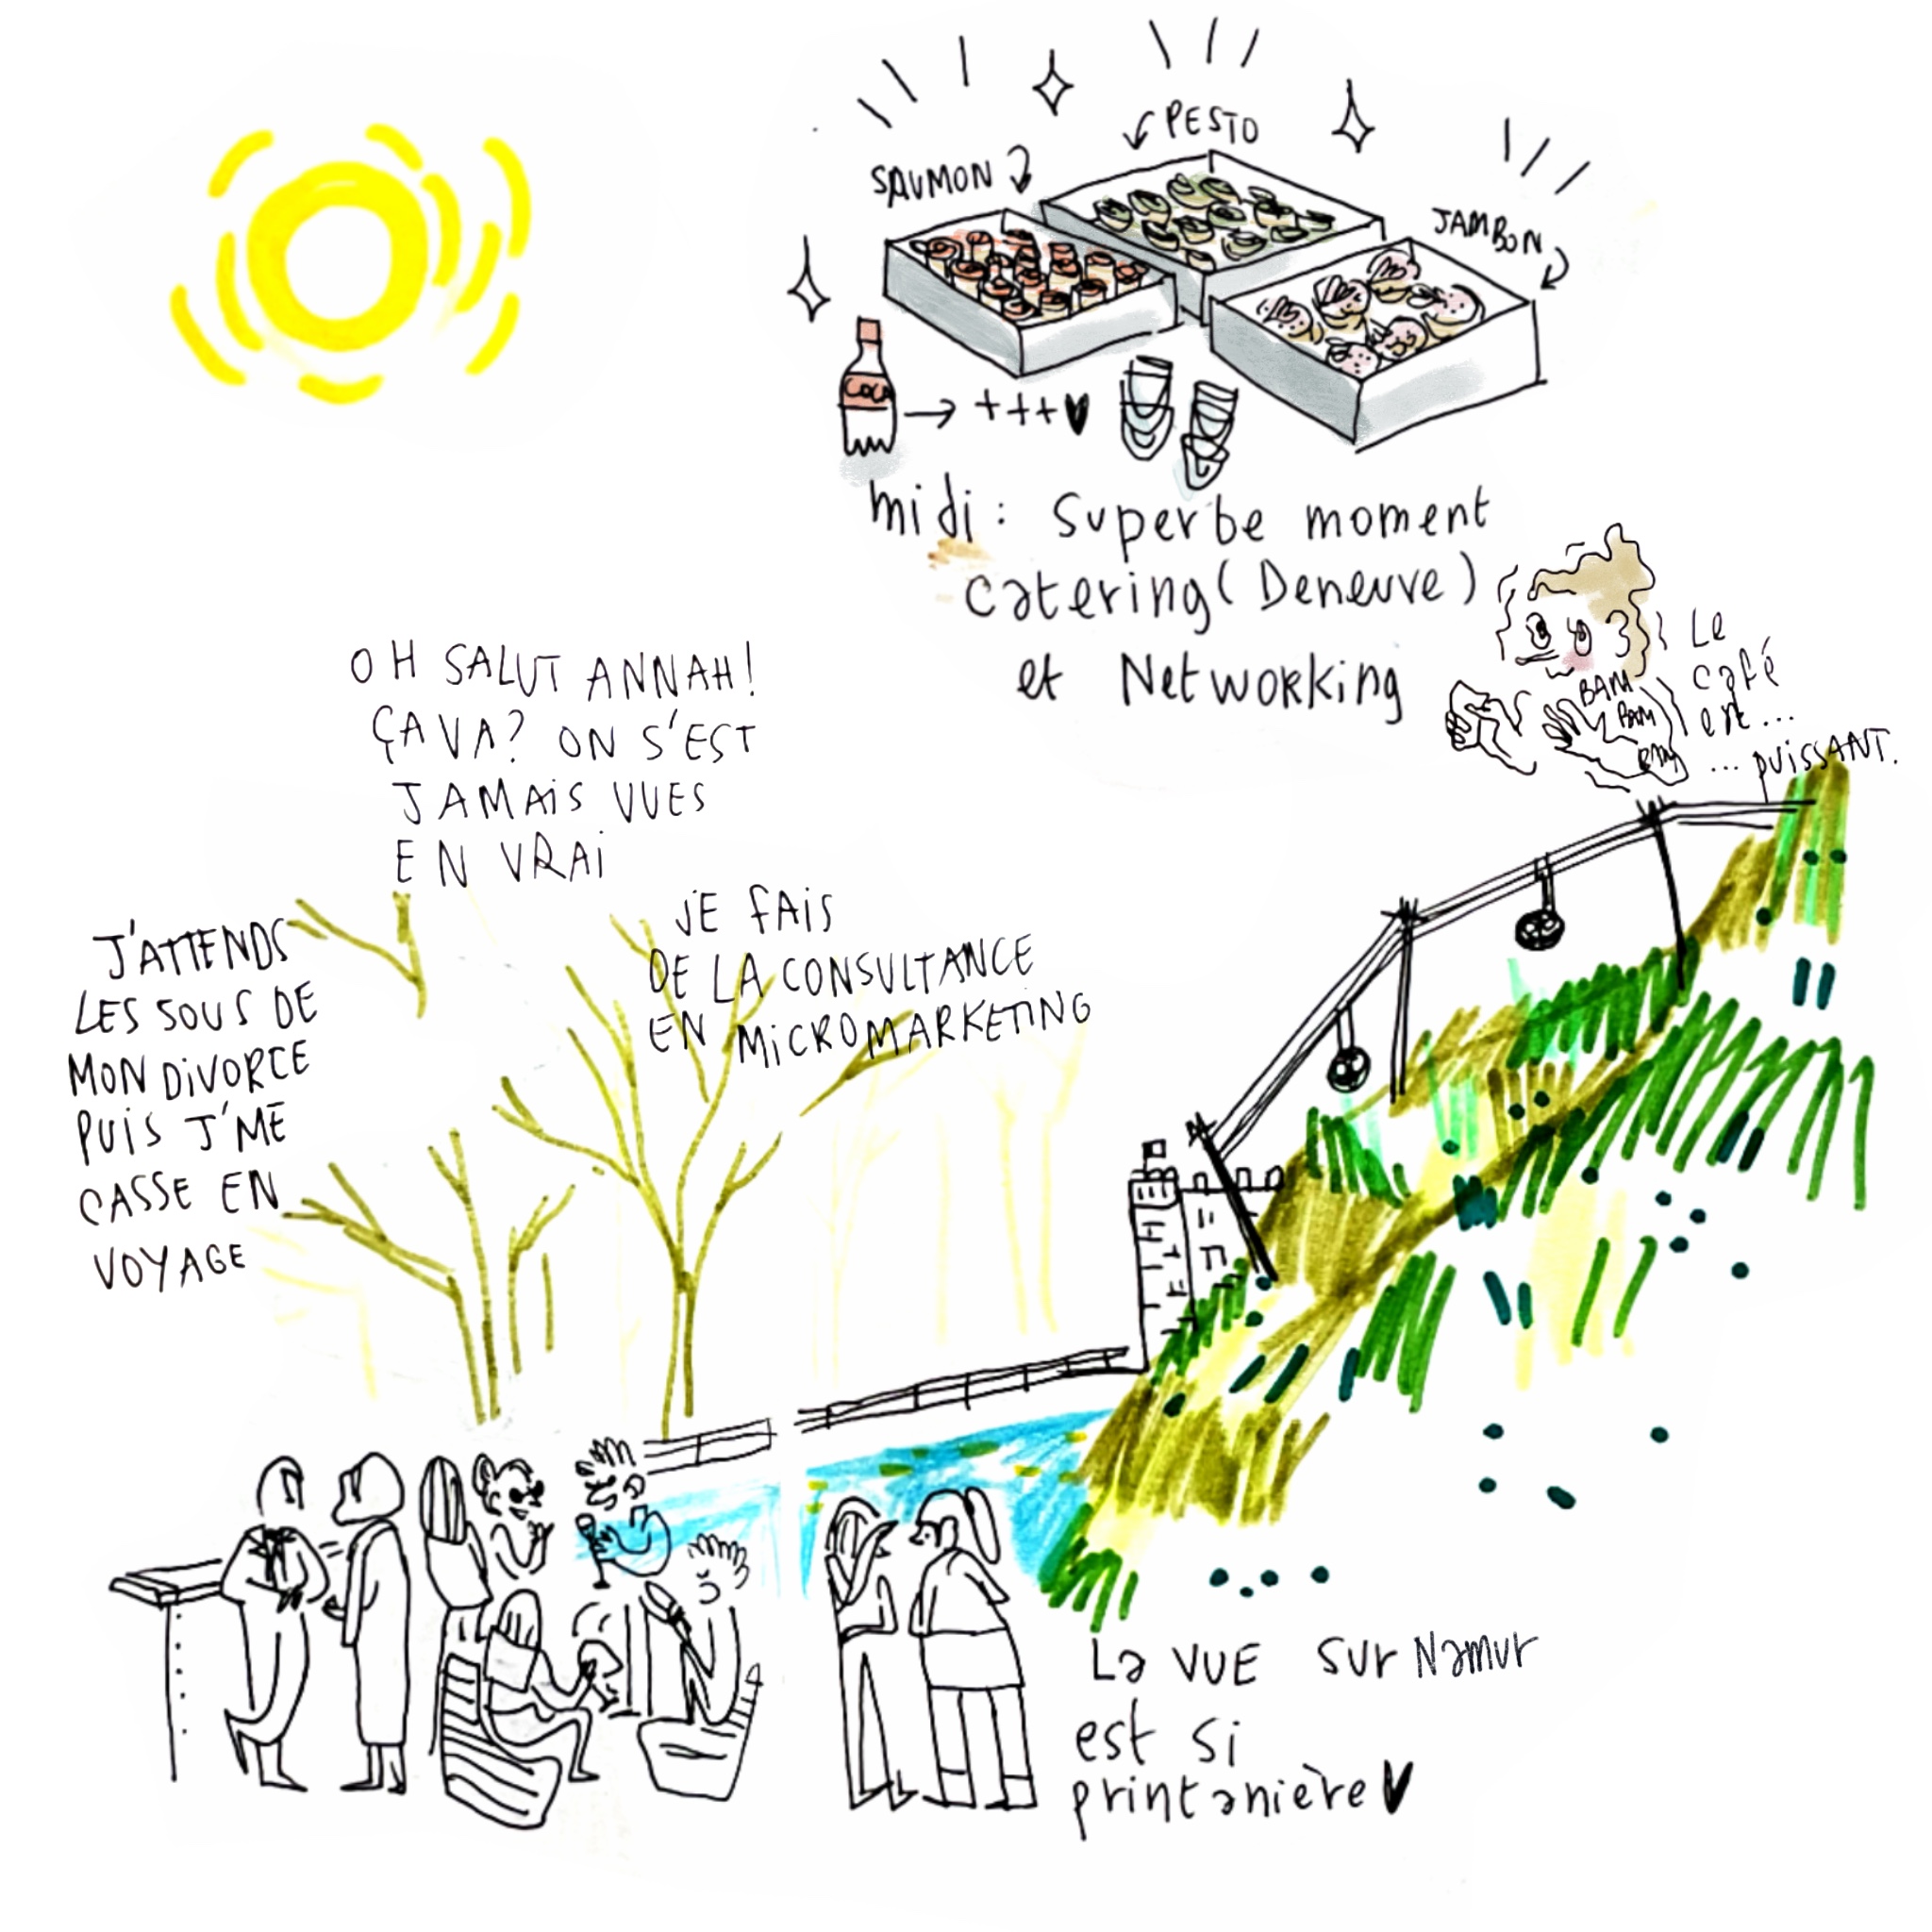 PESTO
SAUMON
JAMBON
COCA
+++
midi: Superbe moment
catering (Deneuve)
et Networking
Le
café
est...
... PUISSANT.
BAM
BAM
BAM
OH SALUT ANNAH!
ÇA VA? ON S'EST
JAMAIS VUES
EN VRAI
JE FAIS
DE LA CONSULTANCE
EN MICROMARKETING
J'ATTENDS
LES SOUS DE
MON DIVORCE
PUIS J'ME
CASSE EN
VOYAGE
La VUE sur Namur
est si
printanière